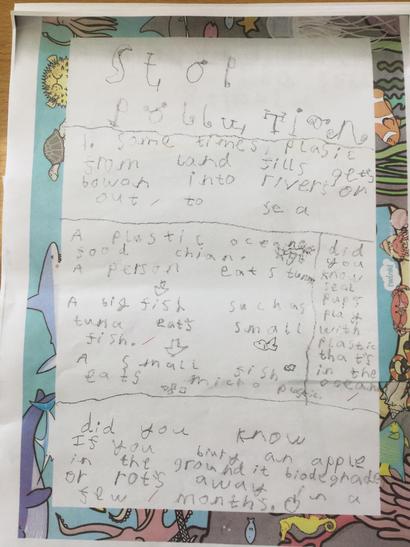 Stop
Pollution
1. Some times plastic
from land fills gets
bowan into rivers or
out to sea
A plastic ocean
food chian.
A person eats tuna
A big fish such as
tuna eats small
fish.
A small fish
eats micro plastic.
did
you
know
seal
pups
play
with
plastic
that's
in the
ocean
did you know
If you bury an apple
in the ground it biodegrade
or rots away in a
few months.